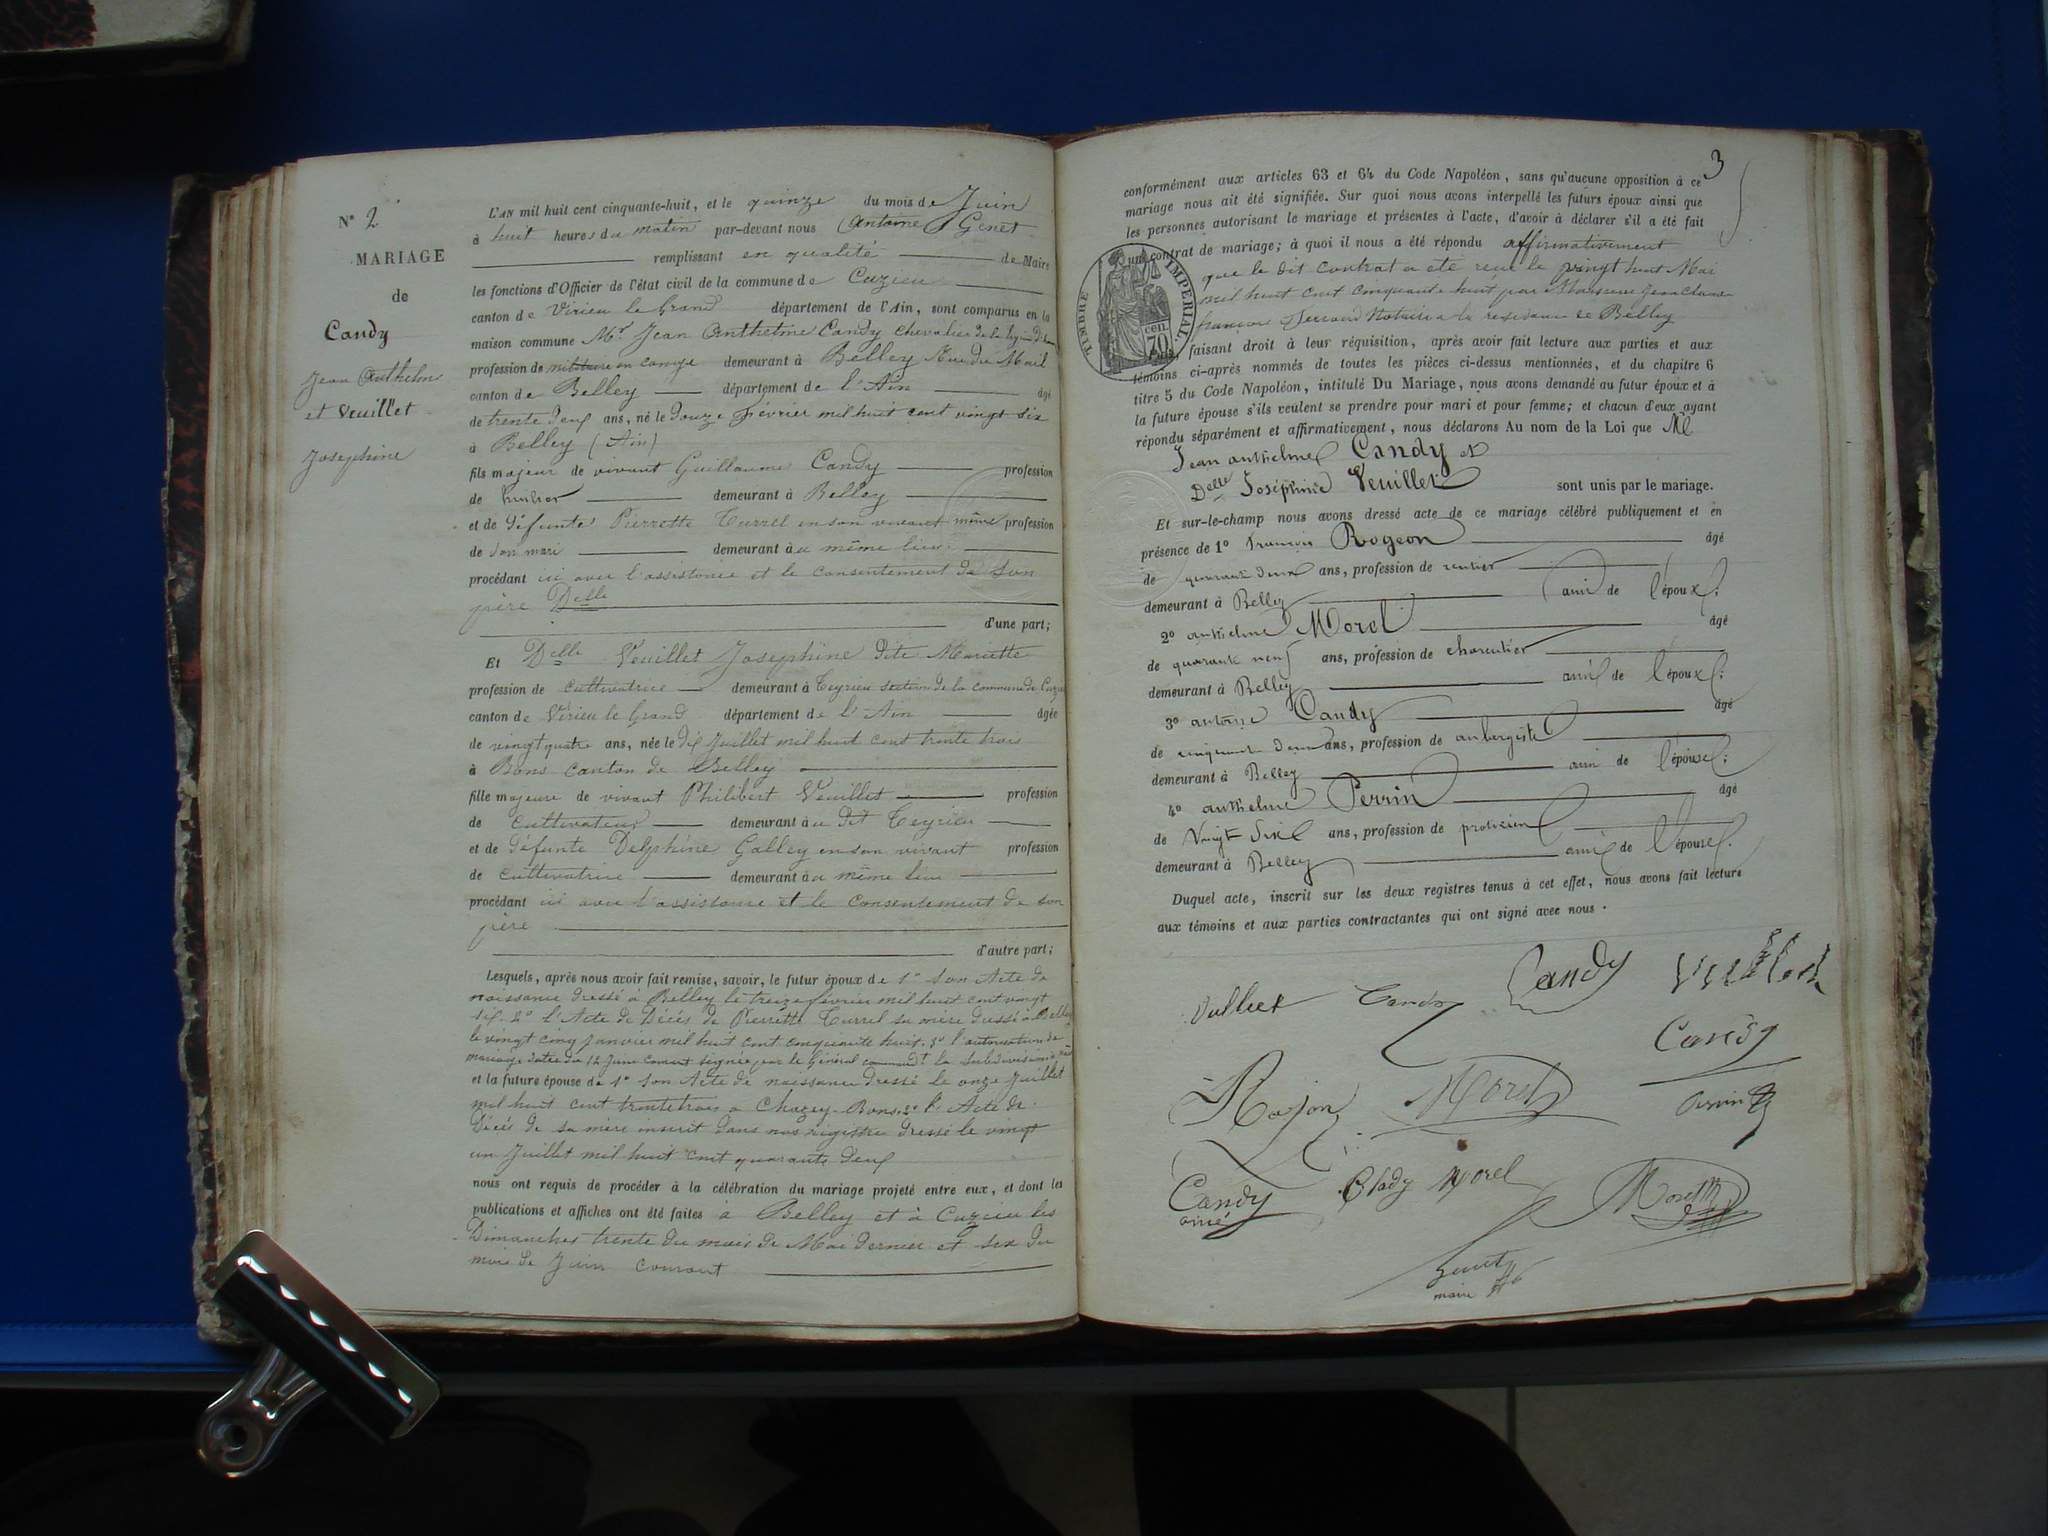 N° 2
MARIAGE
de
Candy
Jean Anthelme
et Veuillet
Josephine
L'AN mil huit cent cinquante-huit, et le quinze du mois de Juin
à huit heures du matin par-devant nous Antoine Genet
remplissant en qualité de Maire
les fonctions d'Officier de l'état civil de la commune de Cuzieu
canton de Virieu le Grand département de l'Ain, sont comparus en la
maison commune Mr Jean Anthelme Candy chevalier de la
profession de militaire en congé demeurant à Belley Rue du Mail
canton de Belley département de l'Ain âgé
de trente deux ans, né le douze février mil huit cent vingt six
à Belley (Ain)
fils majeur de vivant Guillaume Candy profession
de huissier demeurant à Belley
et de défunte Pierrette Turrel en son vivant même profession
de son mari demeurant au même lieu
procédant ici avec l'assistance et le consentement de son
père Delle
d'une part;
Et Delle Veuillet Josephine dite Mariette
profession de cultivatrice demeurant à Ceyrieu section de la commune de Cuzieu
canton de Virieu le Grand département de l'Ain âgée
de vingt quatre ans, née le dix Juillet mil huit cent trente trois
à Bons canton de Belley
fille majeure de vivant Philibert Veuillet profession
de cultivateur demeurant au dit Ceyrieu
et de défunte Delphine Galley en son vivant profession
de cultivatrice demeurant au même lieu
procédant ici avec l'assistance et le consentement de son
père
d'autre part;
Lesquels, après nous avoir fait remise, savoir, le futur époux de 1° Son Acte de
naissance dressé à Belley le treize février mil huit cent vingt
six. 2° l'Acte de Décès de Pierrette Turrel sa mère dressé à Belley
le vingt cinq Janvier mil huit cent cinquante huit. 3° l'autorisation de
mariage datée du 12 Juin courant signée par le Général commandt la Subdivision
et la future épouse de 1° Son Acte de naissance dressé le onze Juillet
mil huit cent trente trois à Chazey-Bons. 2° l'Acte de
Décès de sa mère inscrit dans nos registres dressé le vingt
un Juillet mil huit cent quarante deux
nous ont requis de procéder à la célébration du mariage projeté entre eux, et dont les
publications et affiches ont été faites à Belley et à Cuzieu les
Dimanches trente du mois de Mai dernier et six du
mois de Juin courant
3
conformément aux articles 63 et 64 du Code Napoléon, sans qu'aucune opposition à ce
mariage nous ait été signifiée. Sur quoi nous avons interpellé les futurs époux ainsi que
les personnes autorisant le mariage et présentes à l'acte, d'avoir à déclarer s'il a été fait
un contrat de mariage; à quoi il nous a été répondu affirmativement
que le dit contrat a été reçu le vingt huit Mai
mil huit cent cinquante huit par Jean Claude
françois Notaire à la résidence de Belley
TIMBRE IMPERIAL
70 cen.
faisant droit à leur réquisition, après avoir fait lecture aux parties et aux
témoins ci-après nommés de toutes les pièces ci-dessus mentionnées, et du chapitre 6
titre 5 du Code Napoléon, intitulé Du Mariage, nous avons demandé au futur époux et à
la future épouse s'ils veulent se prendre pour mari et pour femme; et chacun d'eux ayant
répondu séparément et affirmativement, nous déclarons Au nom de la Loi que Mr
Jean anthelme Candy et
Delle Joséphine Veuillet sont unis par le mariage.
Et sur-le-champ nous avons dressé acte de ce mariage célébré publiquement et en
présence de 1° François Rogeon âgé
de quarante deux ans, profession de rentier
demeurant à Belley ami de l'époux;
2° anthelme Morel âgé
de quarante neuf ans, profession de charcutier
demeurant à Belley ami de l'époux;
3° antoine Candy âgé
de cinquante deux ans, profession de aubergiste
demeurant à Belley ami de l'épouse;
4° anthelme Perrin âgé
de Vingt Six ans, profession de praticien
demeurant à Belley ami de l'épouse.
Duquel acte, inscrit sur les deux registres tenus à cet effet, nous avons fait lecture
aux témoins et aux parties contractantes qui ont signé avec nous.
Candy
Vulliet Candy
Candy
Rojon Morel
Perrin
Candy Clady Morel Morel
ainé
Genet
maire